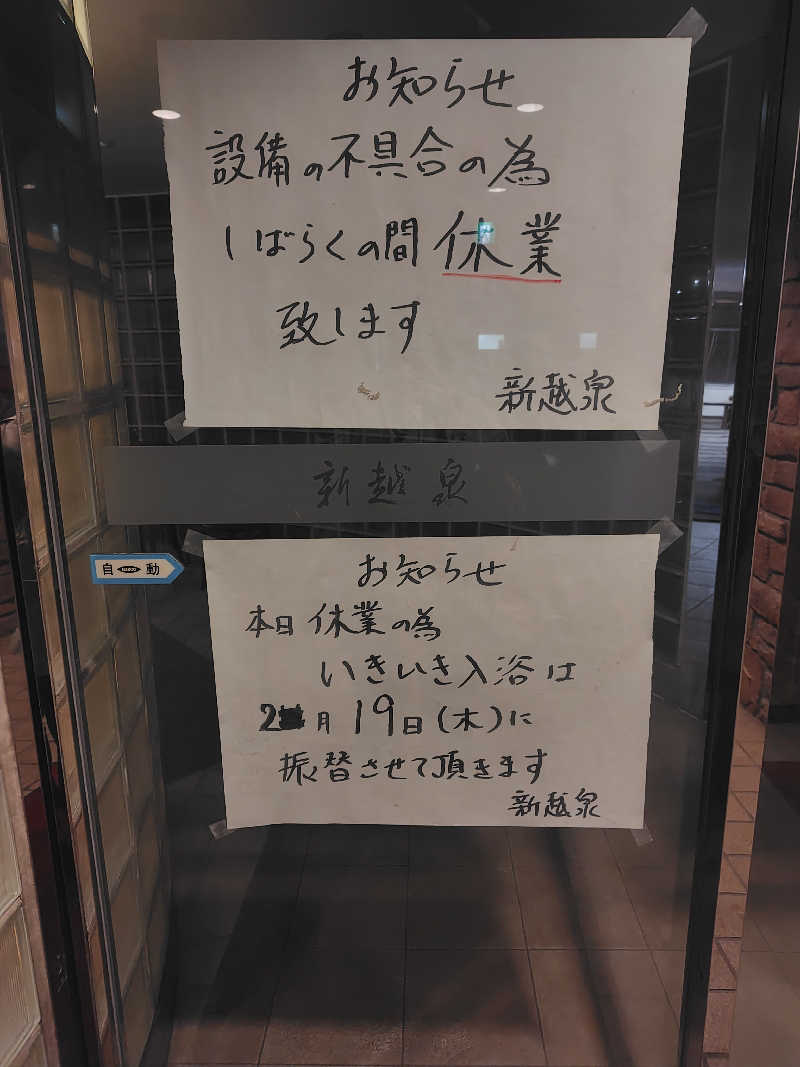 お知らせ
設備の不具合の為
しばらくの間休業
致します
新越泉
新越泉
自動
お知らせ
本日休業の為
いきいき入浴は
2月19日(木)に
振替させて頂きます
新越泉